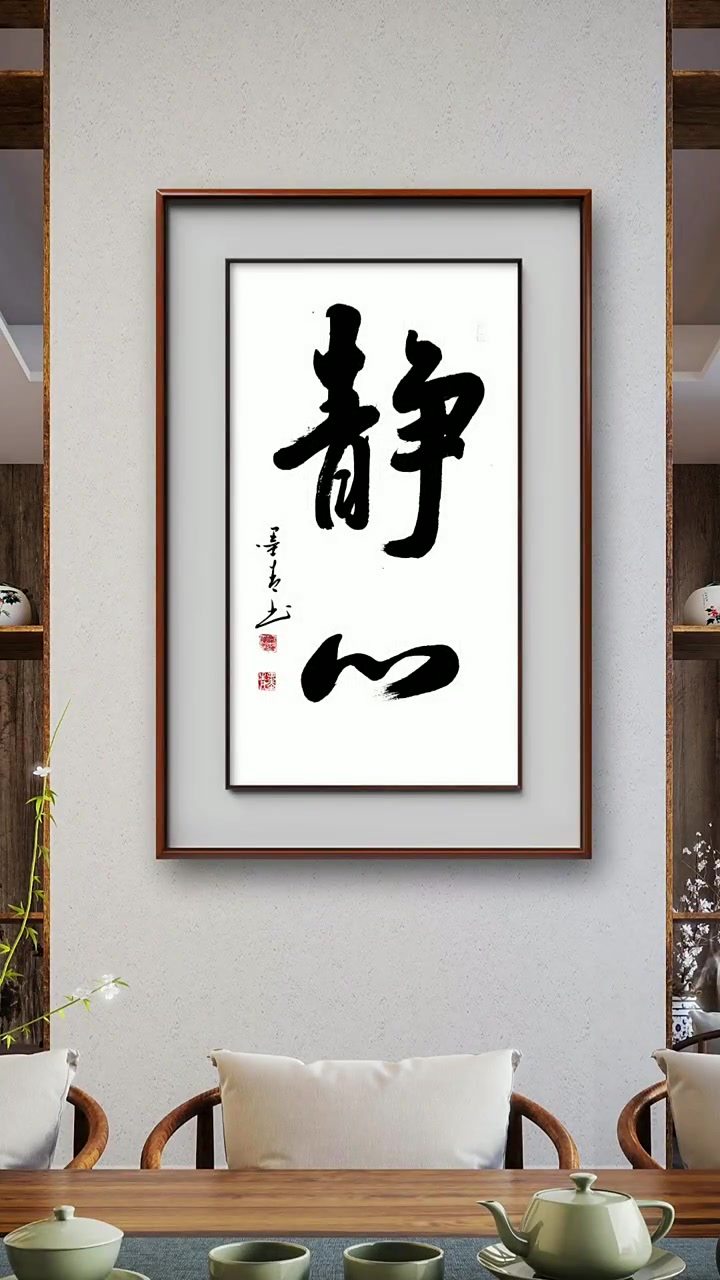 静心
墨青书